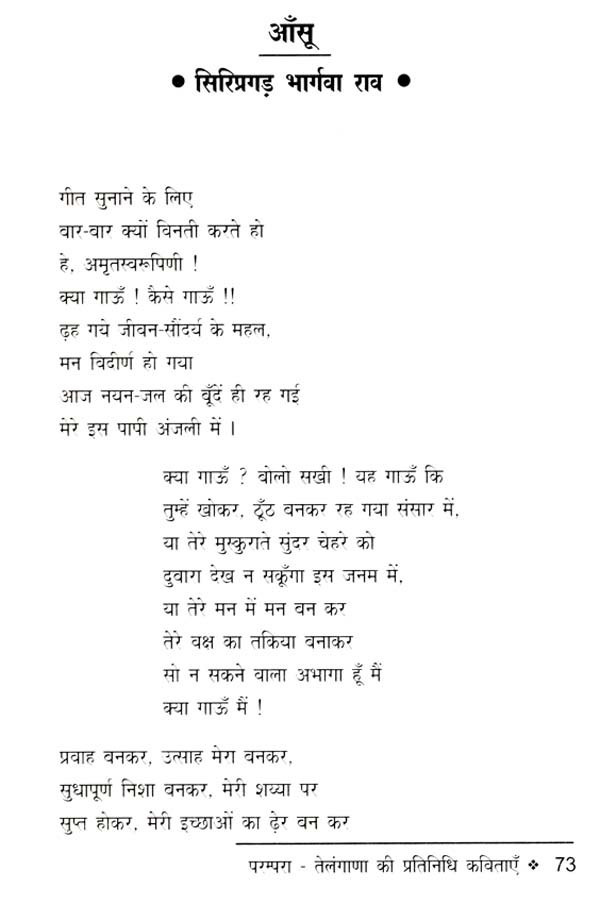 आँसू
• सिरिप्रगड़ भार्गवा राव •
गीत सुनाने के लिए
बार-बार क्यों विनती करते हो
हे, अमृतस्वरूपिणी !
क्या गाऊँ ! कैसे गाऊँ !!
ढ़ह गये जीवन-सौंदर्य के महल,
मन विदीर्ण हो गया
आज नयन-जल की बूँदें ही रह गई
मेरे इस पापी अंजली में ।
क्या गाऊँ ? बोलो सखी ! यह गाऊँ कि
तुम्हें खोकर, ठूँठ बनकर रह गया संसार में,
या तेरे मुस्कुराते सुंदर चेहरे को
दुबारा देख न सकूँगा इस जनम में,
या तेरे मन में मन बन कर
तेरे वक्ष का तकिया बनाकर
सो न सकने वाला अभागा हूँ मैं
क्या गाऊँ मैं !
प्रवाह बनकर, उत्साह मेरा बनकर,
सुधापूर्ण निशा बनकर, मेरी शय्या पर
सुप्त होकर, मेरी इच्छाओं का ढ़ेर बन कर
परम्परा - तेलंगाणा की प्रतिनिधि कविताएँ ❖ 73